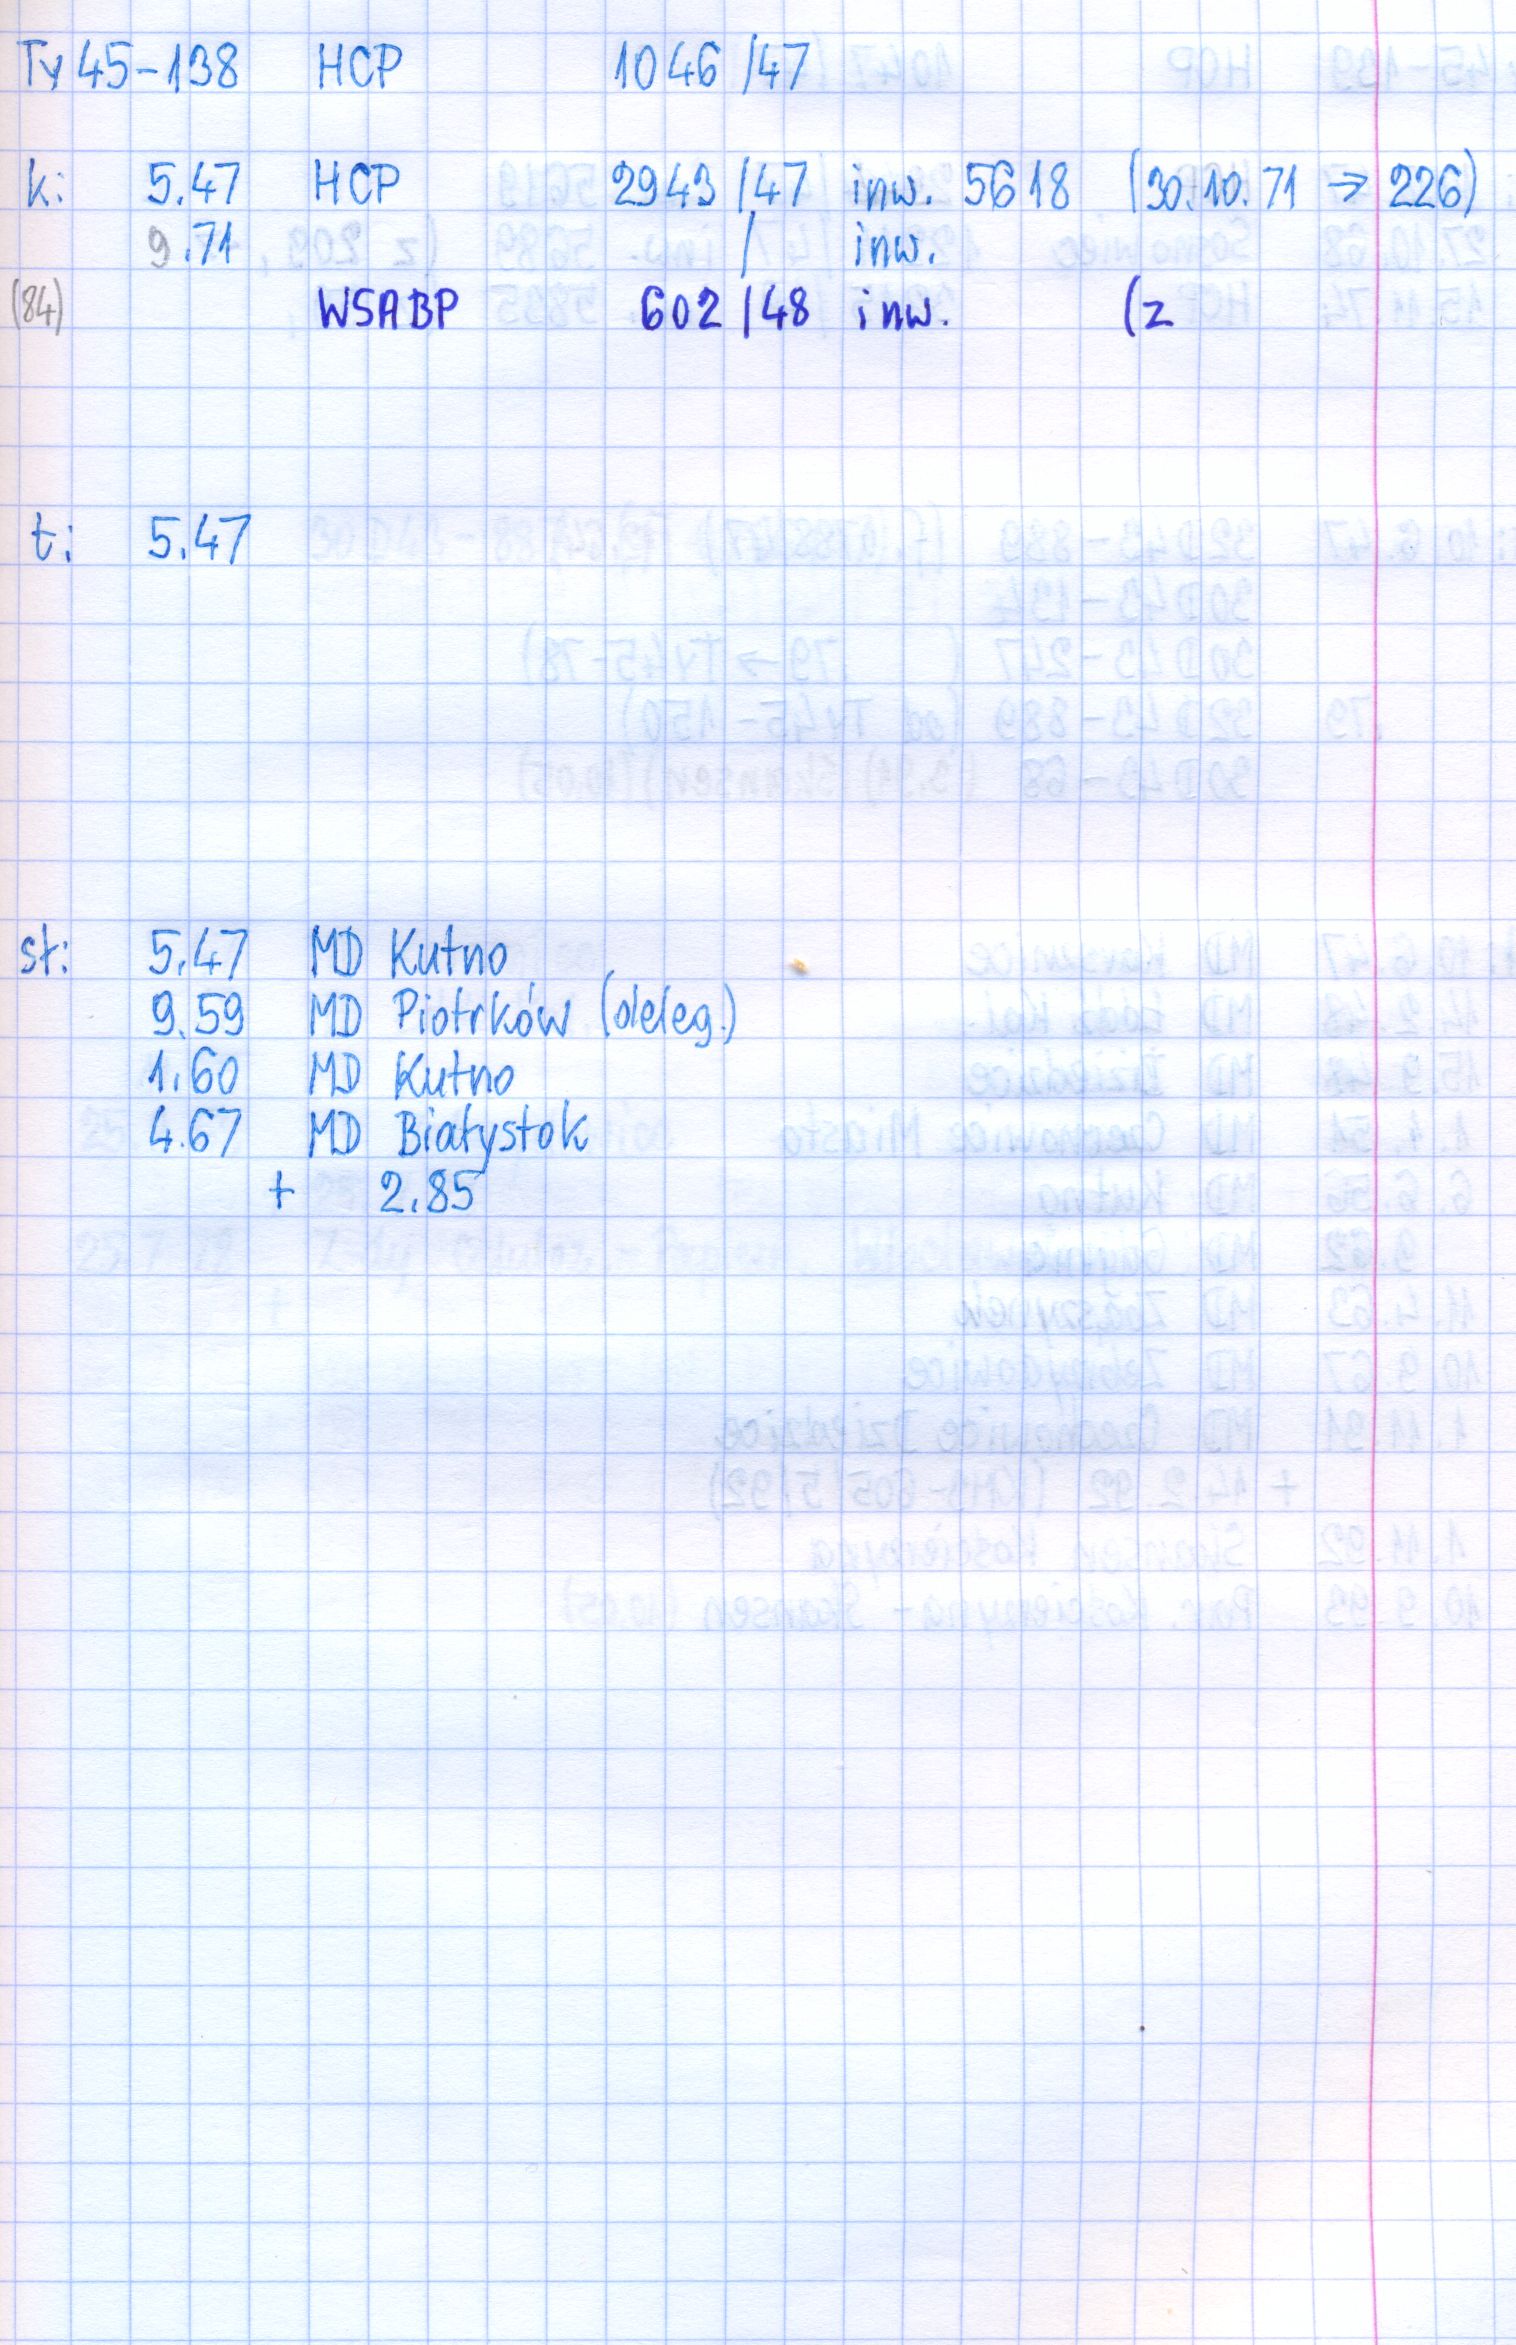 Ty 45-138 HCP 1046 /47
k: 5.47 HCP 2943 /47 inw. 5618 (30.10.71 → 226)
9.71 / inw.
(84) WSABP 602 /48 inw. (z
t: 5.47
st: 5.47 MD Kutno
9.59 MD Piotrków (deleg.)
1.60 MD Kutno
4.67 MD Białystok
+ 2.85